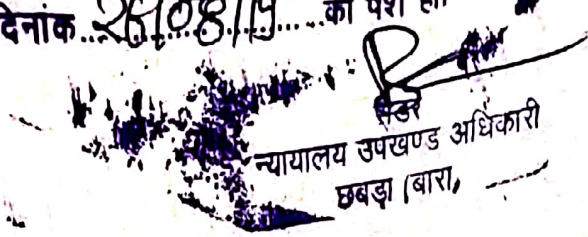 दिनांक 26/08/19 को पेश हो
रीडर
न्यायालय उपखण्ड अधिकारी
छबड़ा (बारा)